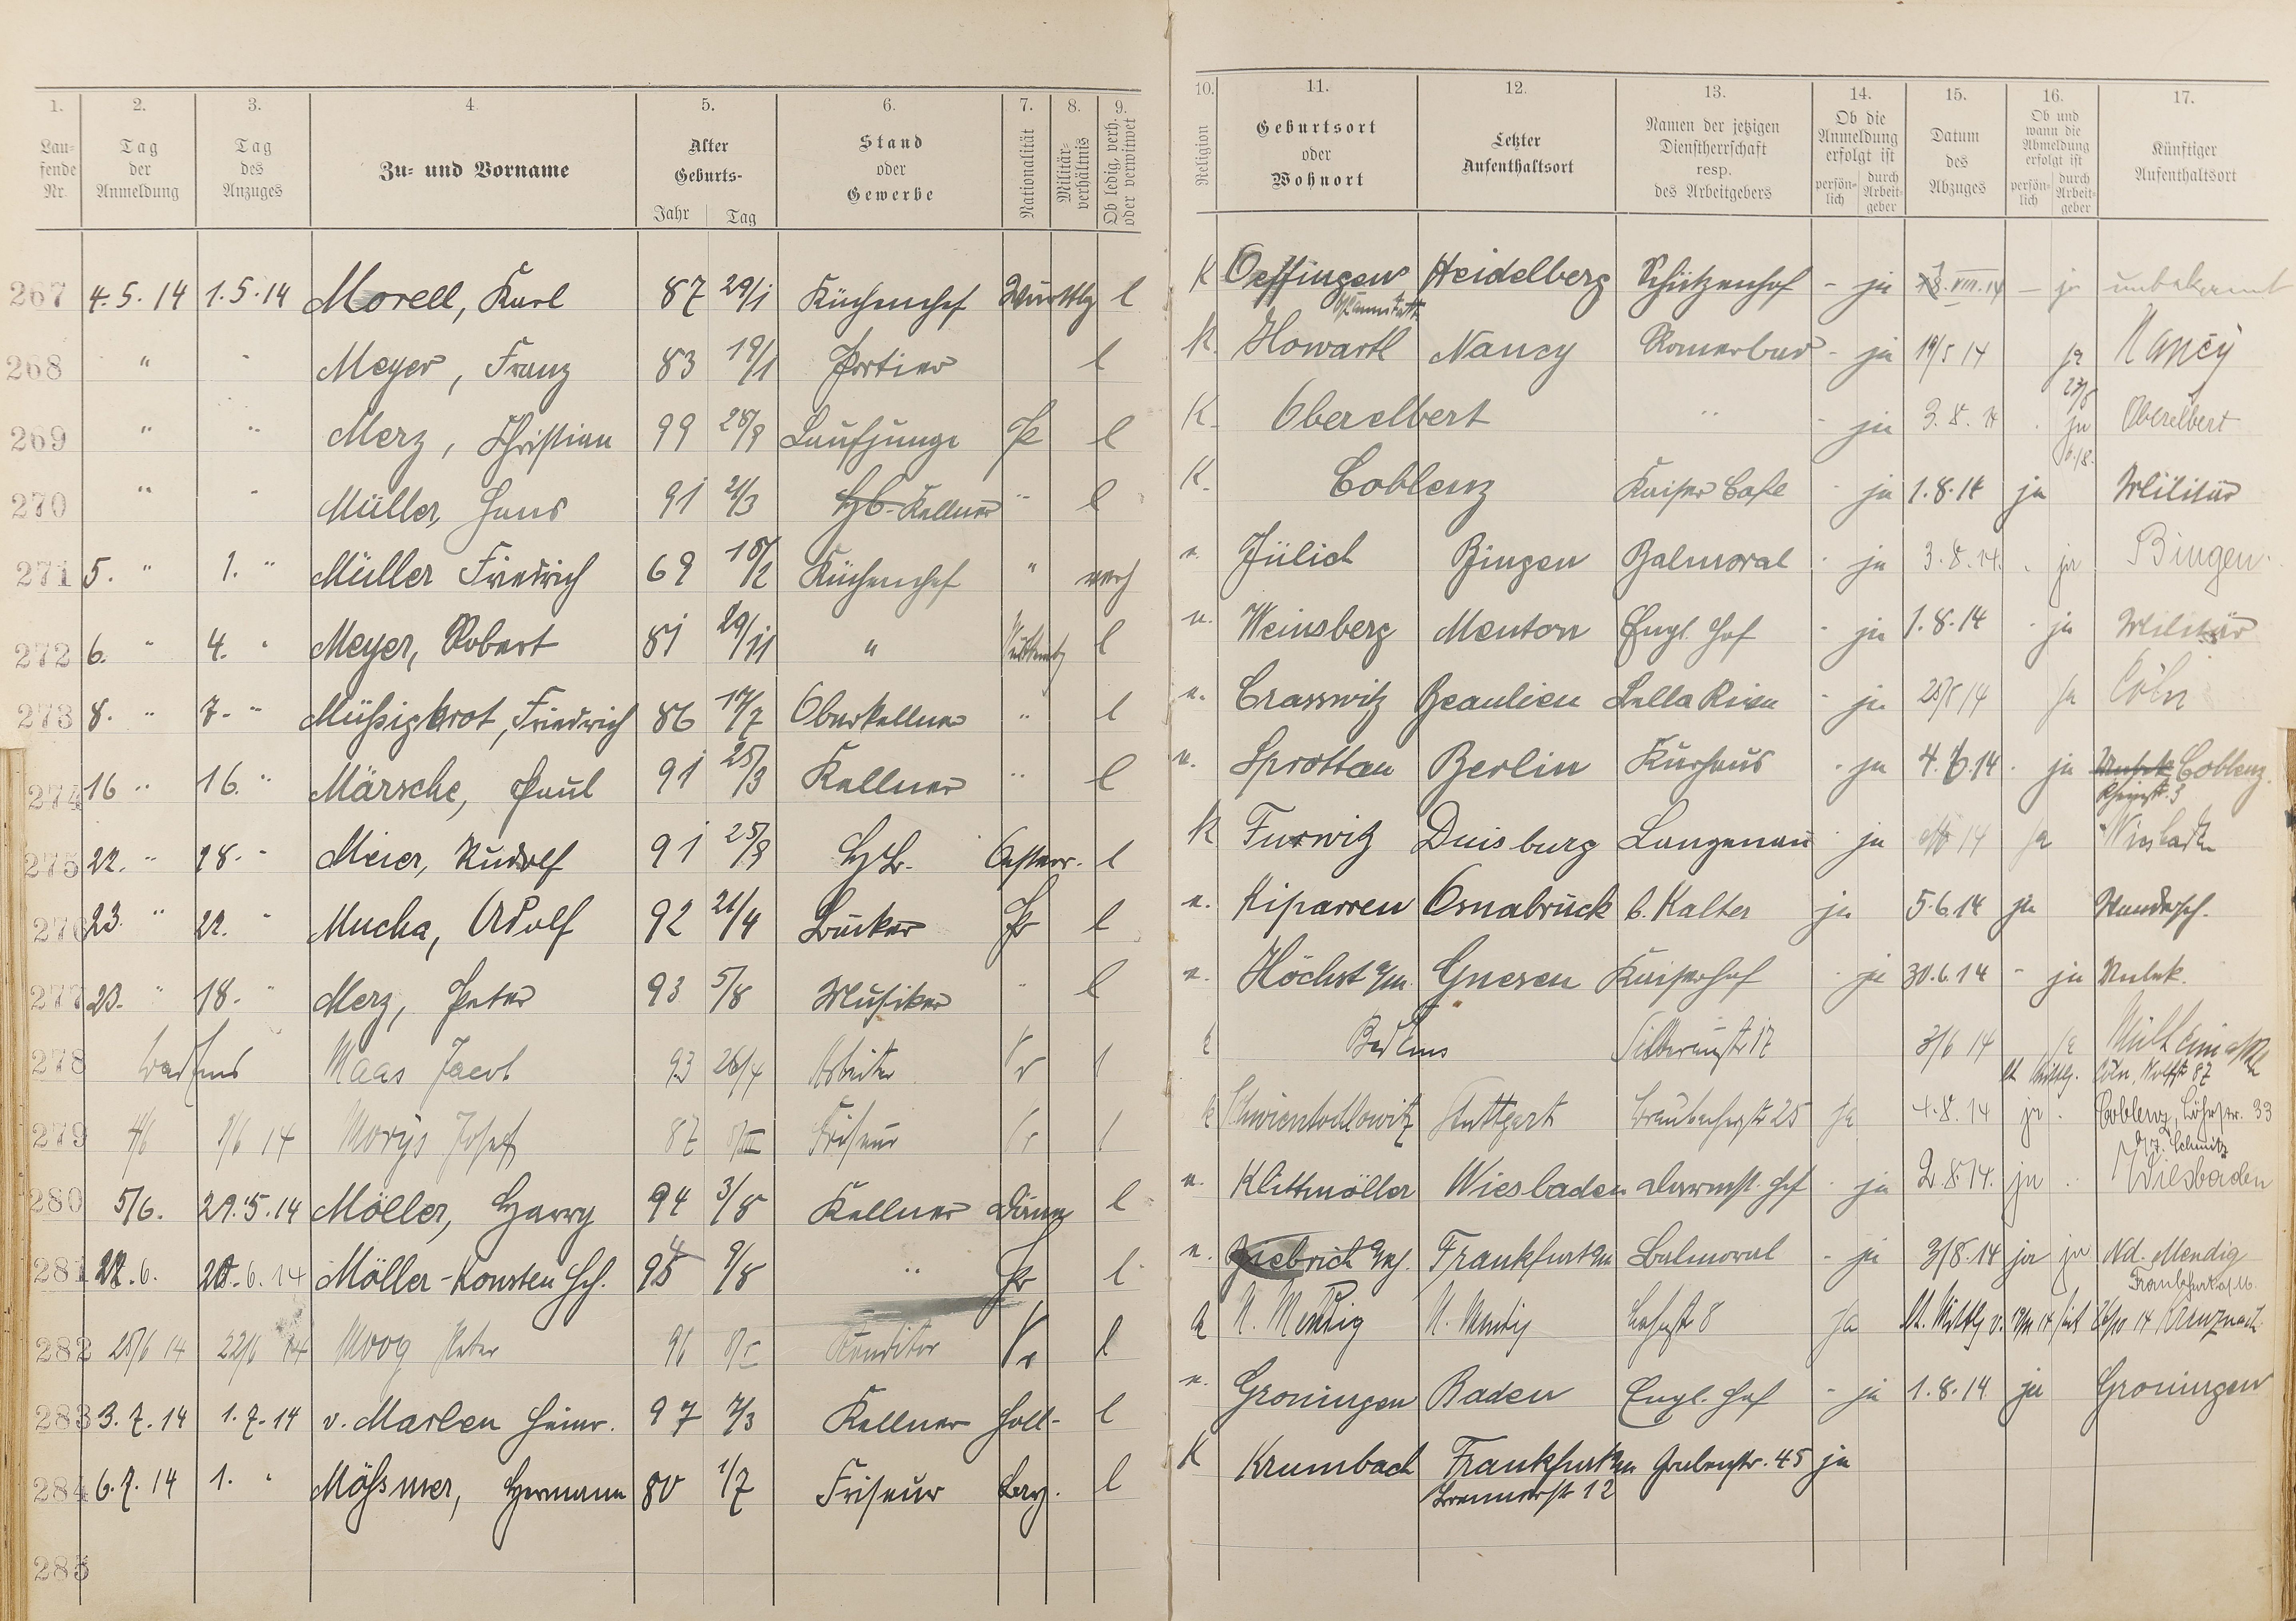 1. 2. 3. 4. 5. 6. 7. 8. 9. 10. 11. 12. 13. 14. 15. 16. 17.
Laufende Nr. Tag der Anmeldung Tag des Anzuges Zu- und Vorname Alter Geburts- Jahr Tag Stand oder Gewerbe Nationalität Militärverhältnis Ob ledig, verh. oder verwitwet Religion Geburtsort oder Wohnort Letzter Aufenthaltsort Namen der jetzigen Dienstherrschaft resp. des Arbeitgebers Ob die Anmeldung erfolgt ist persönlich durch Arbeitgeber Datum des Abzuges Ob und wann die Abmeldung erfolgt ist persönlich durch Arbeitgeber Künftiger Aufenthaltsort
267 4.5.14 1.5.14 Morell, Karl 87 29/1 Küchenchef Württbg l K Oeffingen Heidelberg Schützenhof - ja VIII.14 - ja unbekannt
b/Cannstatt
268 " " Meyer, Franz 83 19/1 Portier l K. Howartl Nancy Römerbad - ja 19/5 14 ja Nancy
269 " " Merz, Christian 99 28/9 Laufjunge Pr l K. Oberelbert " - ja 3.8.14 ja Oberelbert
270 " " Müller, Hans 91 21/3 Hb. Kellner " l K. Coblenz Kaiser Café - ja 1.8.14 ja Militär
271 5. " 1. " Müller Friedrich 69 18/2 Küchenchef " verh e. Jülich Bingen Balmoral - ja 3.8.14. ja Bingen
272 6. " 4. " Meyer, Robert 81 29/11 " l e. Weinsberg Menton Engl. Hof - ja 1.8.14 - ja Militär
273 8. " 7. " Müßigbrot, Friedrich 86 17/7 Oberkellner " l e. Crasswitz Beaulieu Bella Riva - ja 28/5 14 ja Cöln
274 16 " 16. " Märsche, Paul 91 25/3 Kellner " l e. Sprottau Berlin Kurhaus - ja 4.6.14 - ja Unbek. Coblenz.
Rheinstr. 3
275 22. " 18. " Meier, Rudolf 91 25/9 Hb. Oesterr. l K Furwitz Duisburg Langenau - ja 14 ja Wiesbaden
276 23. " 22. " Mucha, Adolf 92 21/4 Bäcker Pr l e. Kiparren Osnabrück b. Kalter ja 5.6.14 ja Wandersch.
277 23. " 18. " Merz, Peter 93 5/8 Musiker " l e. Höchst a/m. Gnesen Kaiserhof - ja 30.6.14 - ja Unbek.
278 Bad Ems Maas Jacob 93 26/4 Arbeiter Pr l Bad Ems Silberaustr 17 3/6 14 ja Mülheim
Cöln, Wolfstr 87
279 4/6 14 Morys Josef 87 Friseur Pr l k Schwientochlowitz Stuttgart Braubacherstr 25 ja 4.8.14 ja. Coblenz, Löhrstr. 33
b/J. Schmitz
280 5/6. 29.5.14 Möller, Harry 94 3/8 Kellner Däne l e. Klittmöller Wiesbaden Darmst. Hof - ja 2.8.14. ja Wiesbaden
281 22.6. 20.6.14 Möller-Konsten Hch. 95 9/8 " Pr l e. Biebrich a/Rh. Frankfurt a/m Balmoral - ja 3/8.14 ja ja Nd. Mendig
Frankfurt a/ M.
282 25/6 14 22/6 14 Moog Peter 96 Konditor Pr l k N. Mendig N. Mendig Lahnstr 8 ja Kreuznach
283 3.7.14 1.7.14 v. Marlen Heinr. 97 7/3 Kellner Holl- l e. Groningen Baden Engl. Hof - ja 1.8.14 ja Groningen
284 6.7.14 1. " Mößmer, Hermann 80 1/7 Friseur Bay. l K Krumbach Frankfurt a/m Grabenstr. 45 ja
12
285